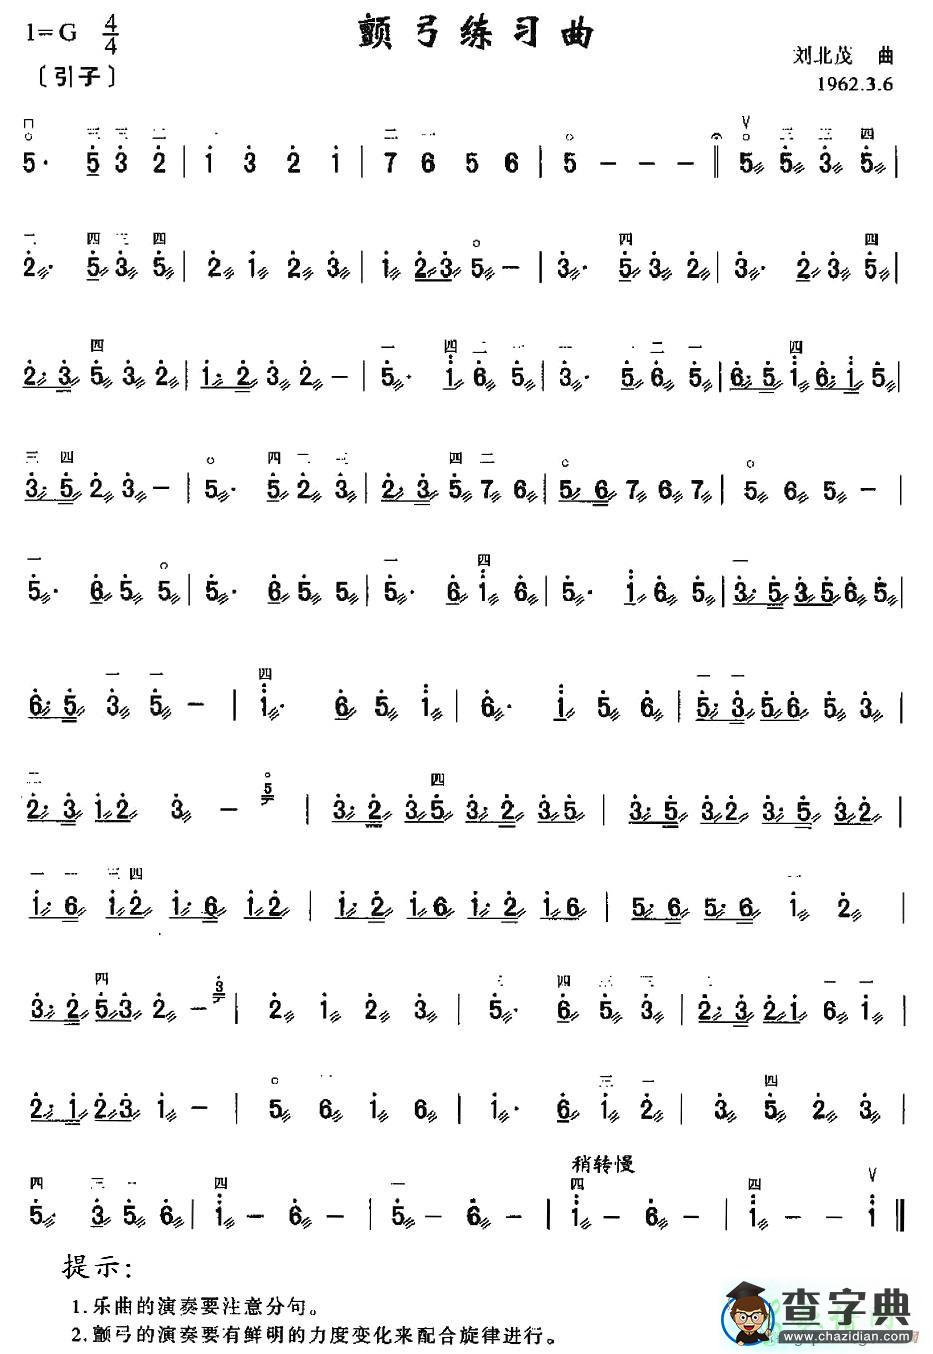 颤弓练习曲
1=G 4/4
刘北茂 曲
〔引子〕
1962.3.6
5· 5 3 2 | 1 3 2 1 | 7 6 5 6 | 5 - - - ‖ 5 5 3 5 |
2· 5 3 5 | 2 1 2 3 | 1 2 3 5 - | 3· 5 3 2 | 3· 2 3 5 |
2· 3 5 3 2 | 1· 2 3 2 - | 5· 1 6 5 | 3· 5 6 5 | 6· 5 1 6 1 5 |
3· 5 2 3 - | 5· 5 2 3 | 2· 3 5 7 6 | 5· 6 7 6 7 | 5 6 5 - |
5· 6 5 5 | 5· 6 5 5 | 5· 6 1 6 | 5· 1 6 5 | 3· 5 3 5 6 5 |
6· 5 3 5 - | 1· 6 5 1 | 6· 1 5 6 | 5· 3 5 6 5 3 |
2· 3 1 2 3 - 5 | 3· 2 3 5 3· 2 3 5 | 3· 5 3 2 3· 5 3 2 |
1· 6 1 2 1· 6 1 2 | 1· 2 1 6 1· 2 1 6 | 5· 6 5 6 1 2 |
3· 2 5 3 2 - 3 | 2 1 2 3 | 5· 6 5 3 | 2· 3 2 1 6 1 |
2· 1 2 3 1 - | 5 6 1 6 | 1· 6 1 2 | 3 5 2 3 |
稍转慢
5· 3 5 6 | 1 - 6 - | 5 - 6 - | 1 - 6 - | 1 - - 1 ‖
提示:
1.乐曲的演奏要注意分句。
2.颤弓的演奏要有鲜明的力度变化来配合旋律进行。
查字典
www.chazidian.com